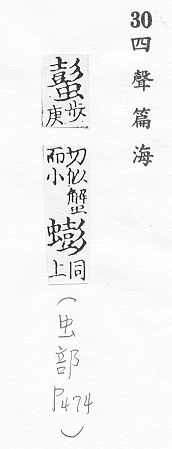 30四聲篇海
蟚步庚切似蟹而小蟛同上(虫部P474)